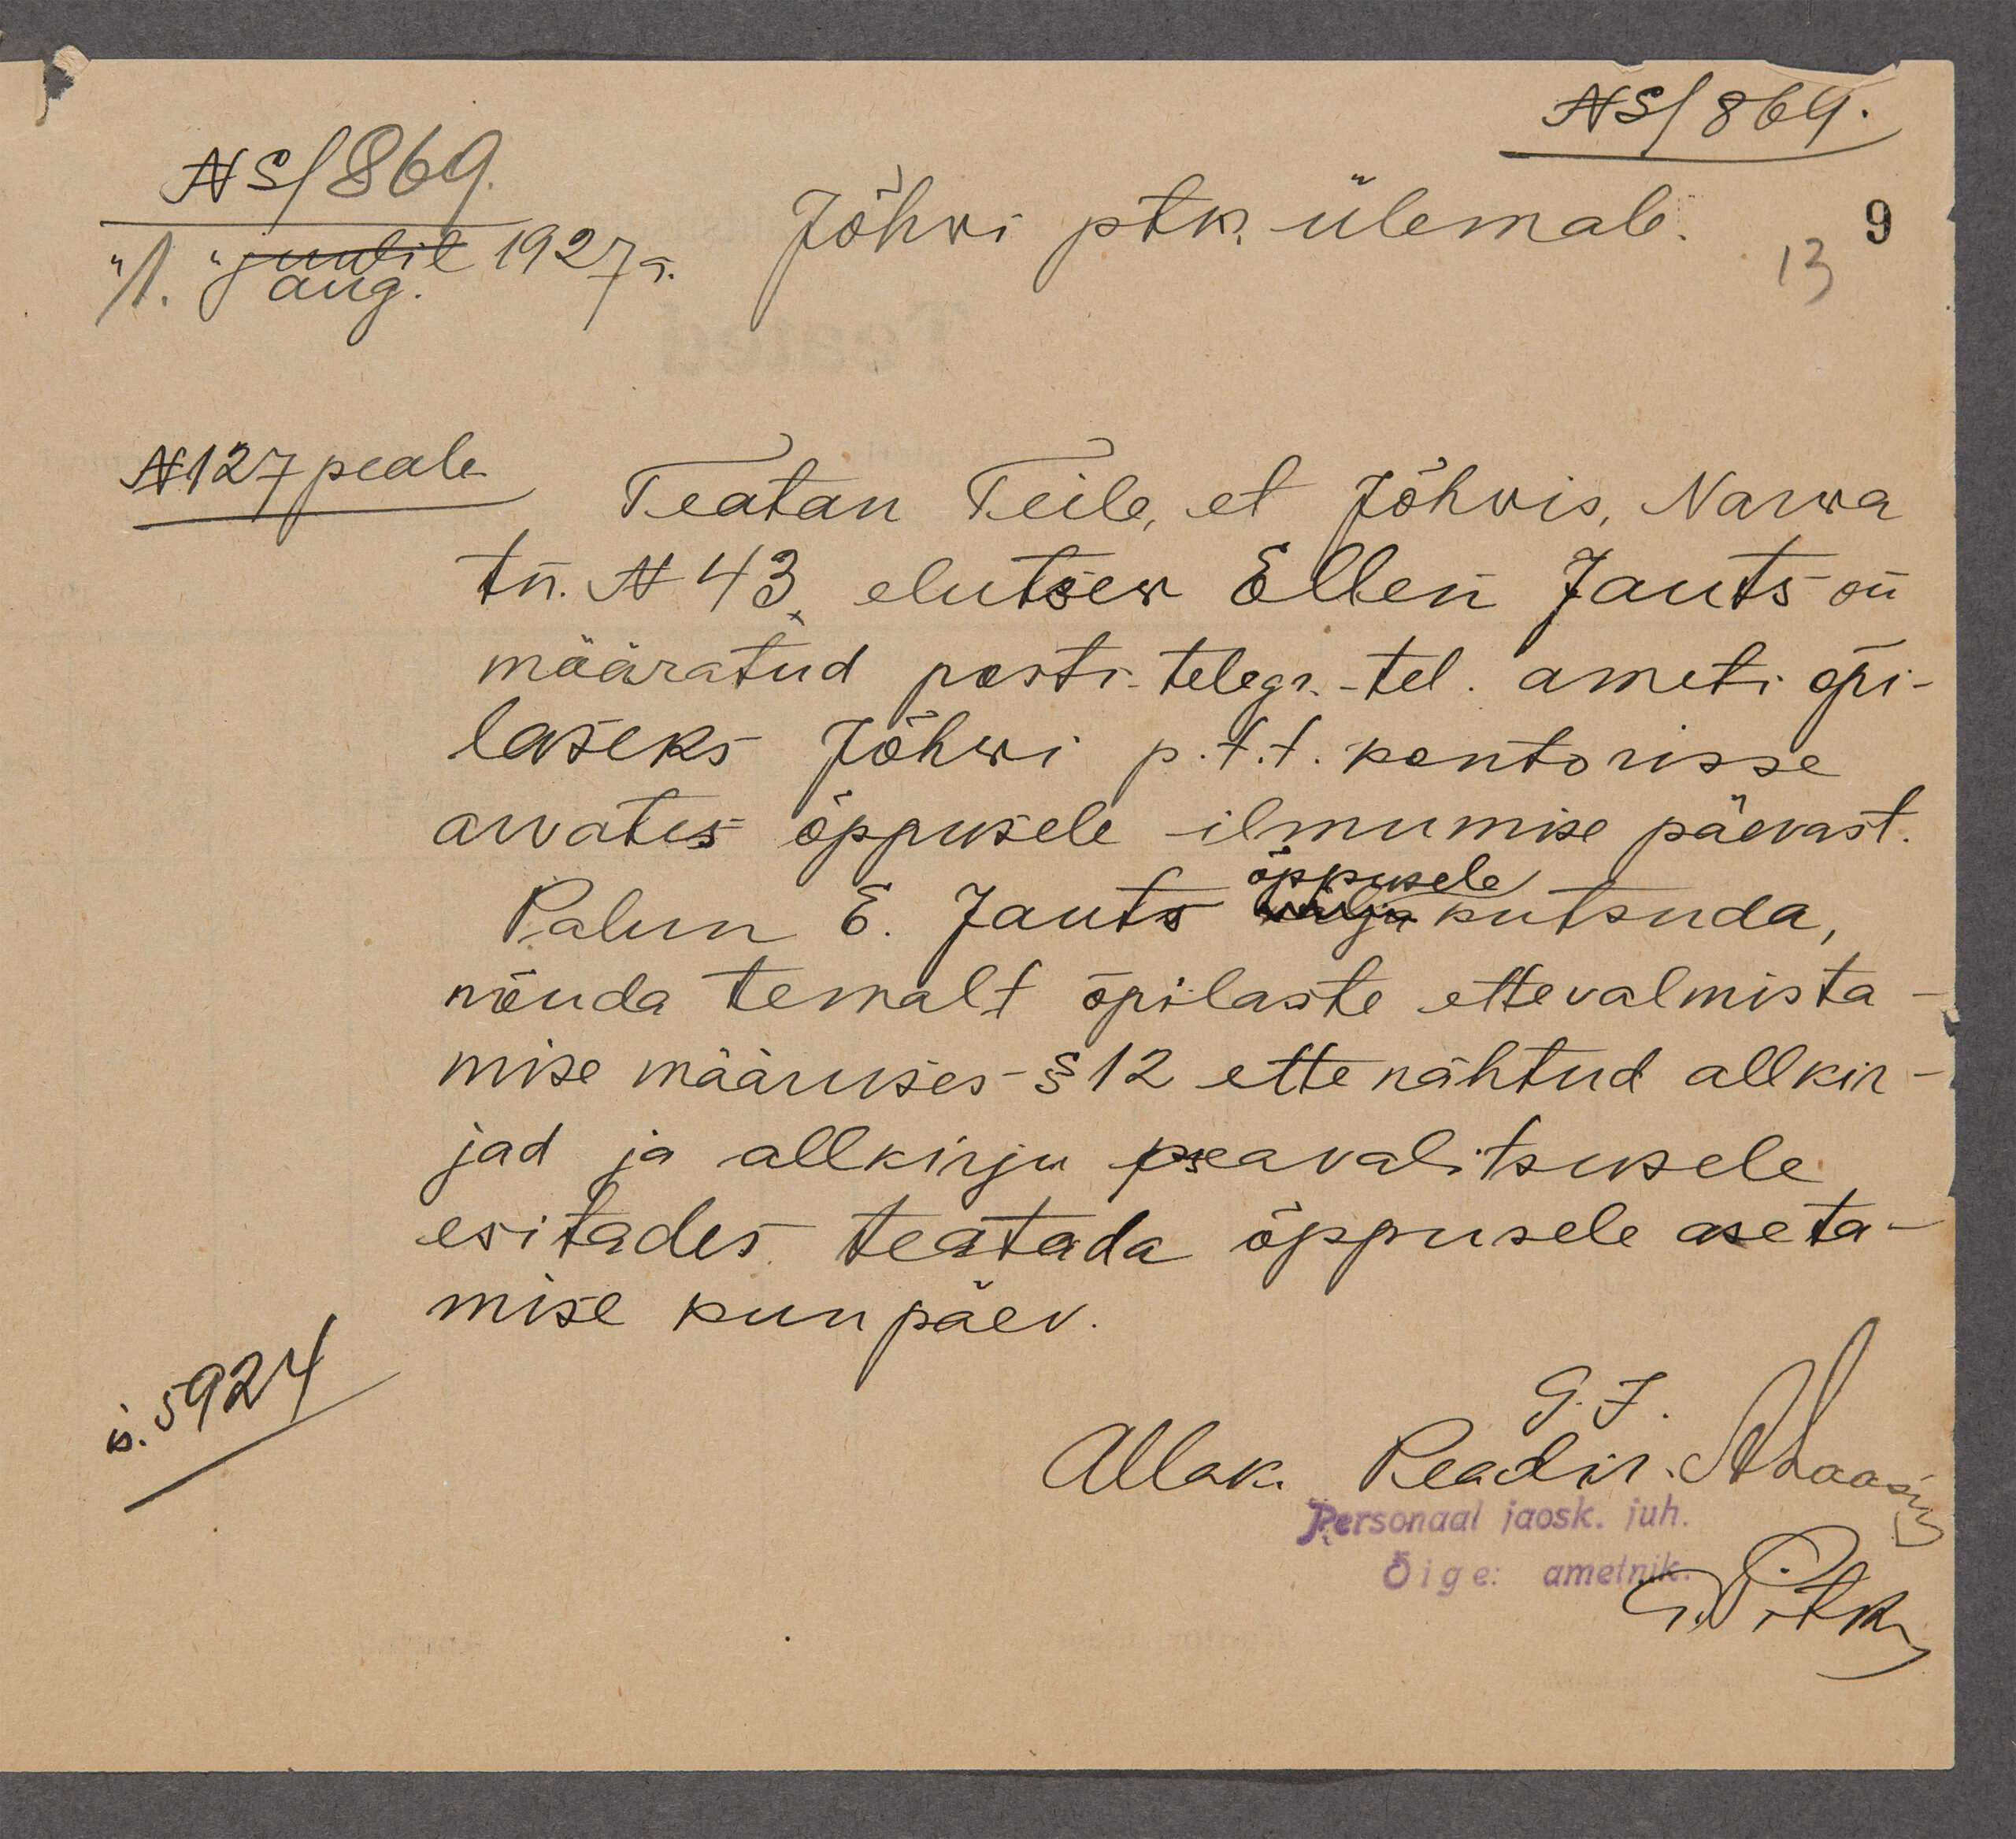 № S/869.
№ S/869.
"1." juulil 1927 a.
aug.
Jõhvi ptk. ülemale.
9
13
№ 127 peale
Teatan Teile, et Jõhvis, Narva
tn. № 43, elutsev Ellen Jauts on
määratud posti-telegr.-tel. ameti õpi-
laseks Jõhvi p.t.t. kontorisse
arvates õppusele ilmumise päevast.
õppusele
Palun E. Jauts välja kutsuda,
nõuda temalt õpilaste ettevalmista-
mise määruses § 12 ettenähtud allkir-
jad ja allkirju peavalitsusele
esitades teatada õppusele aseta-
mise kuupäev.
is. 5924
G. J.
Allak. Peadir.
Personaal jaosk. juh.
Õige: ametnik.
G. Pitk